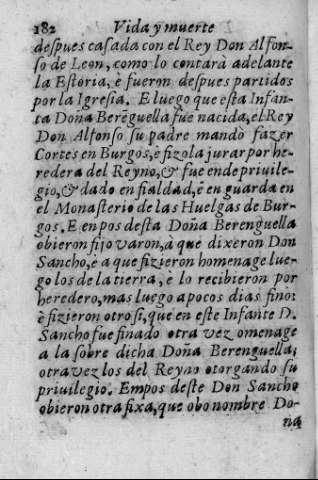 182 Vida y muerte
despues casada con el Rey Don Alfon-
so de Leon, como lo contarà adelante
la Estoria, è fueron despues partidos
por la Igresia. E luego que esta Infan-
ta Doña Berēguella fue nacida, el Rey
Don Alfonso su padre mandò fazer
Cortes en Burgos, è fizola jurar por he-
redera del Reyno, & fue ende priuile-
gio, & dado en fialdad, è en guarda en
el Monasterio de las Huelgas de Bur-
gos. E en pos desta Doña Berenguella
obieron fijo varon, a que dixeron Don
Sancho, è a que fizieron homenage lue-
go los de la tierra, è lo recibieron por
heredero, mas luego a pocos dias finò:
è fizieron otrosi, que en este Infante D.
Sancho fue finado otra vez omenage
a la sobre dicha Doña Berenguella,
otra vez los del Reyno otorgando su
priuilegio. Empos deste Don Sancho
obieron otra fixa, que obo nombre Do-
ña